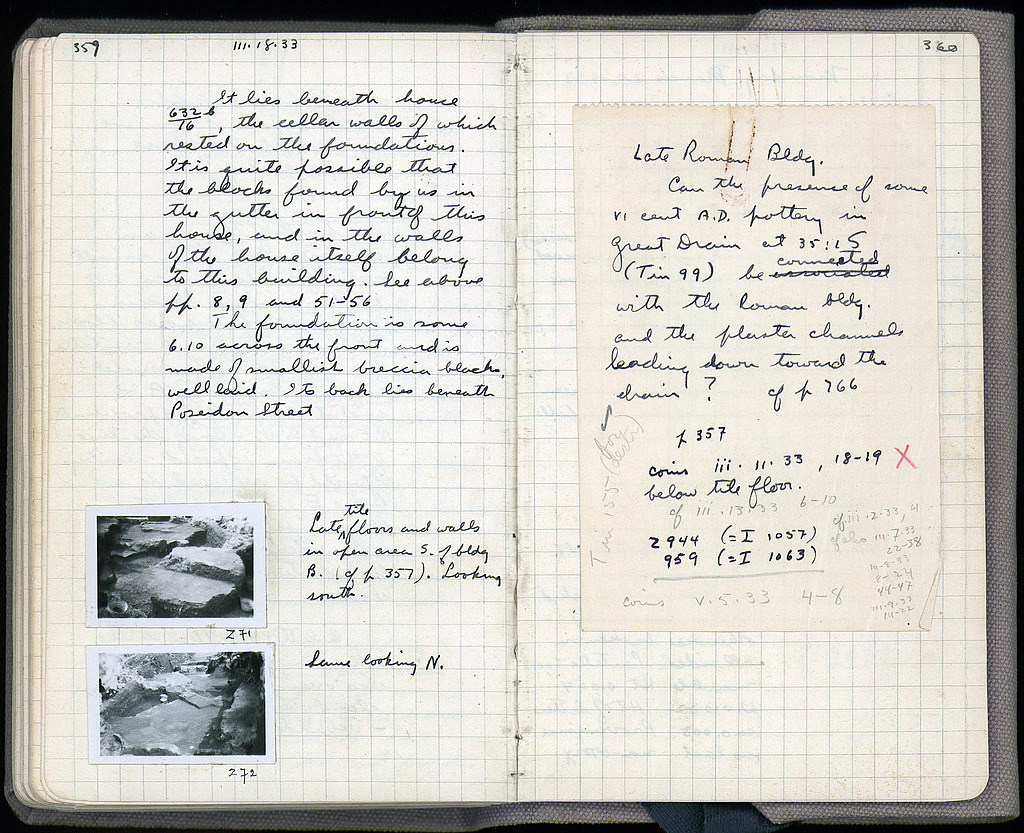 359
III.18.33
It lies beneath house
632b/16, the cellar walls of which
rested on the foundations.
It is quite possible that
the blocks found by us in
the gutter in front of this
house, and in the walls
of the house itself belong
to this building. See above
pp. 8, 9 and 51-56
The foundation is some
6.10 across the front and is
made of smallish breccia blocks,
well laid. Its back lies beneath
Poseidon Street
tile
Late floors and walls
in open area S. of bldg
B. (cf p. 357). Looking
south.
271
Same looking N.
272
360
Late Roman Bldg.
Can the presence of some
VI cent A.D. pottery in
Great Drain at 35:15
connected
(Tin 99) be associated
with the Roman bldg.
and the plaster channels
leading down toward the
drain? cf p 766
p 357
coins iii.11.33, 18-19 X
below tile floor.
cf iii.13.33 6-10
cf iii.2.33, 4
cf also III.7.33
22-38
III.8.33
8-24
44-47
III.9.33
14-22
2944 (=I 1057)
959 (=I 1063)
coins V.5.33 4-8
Tin 155